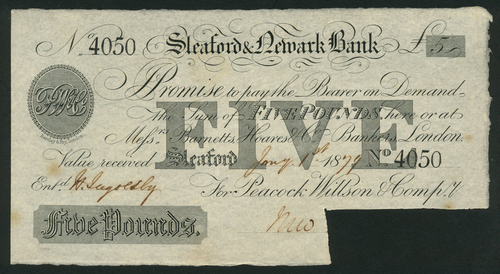 No. 4050 Sleaford & Newark Bank £5
I Promise to pay the Bearer on Demand
the Sum of FIVE POUNDS, here or at
Messrs. Barnetts, Hoares & Co. Bankers, London.
FIVE
Value received Sleaford Jany 1879 No 4050
Entd.
For Peacock Willson & Compy.
Five Pounds.